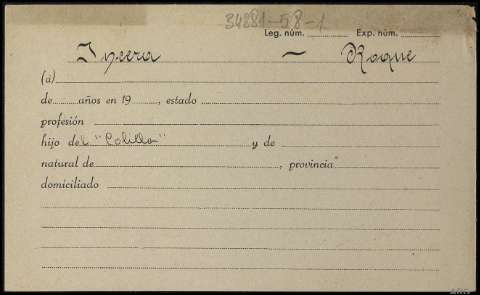 34881-58-1
Leg. núm. Exp. núm.
Ynecra — Roque
(a)
de años en 19 , estado
profesión
hijo del "Colillon" y de
natural de , provincia
domiciliado